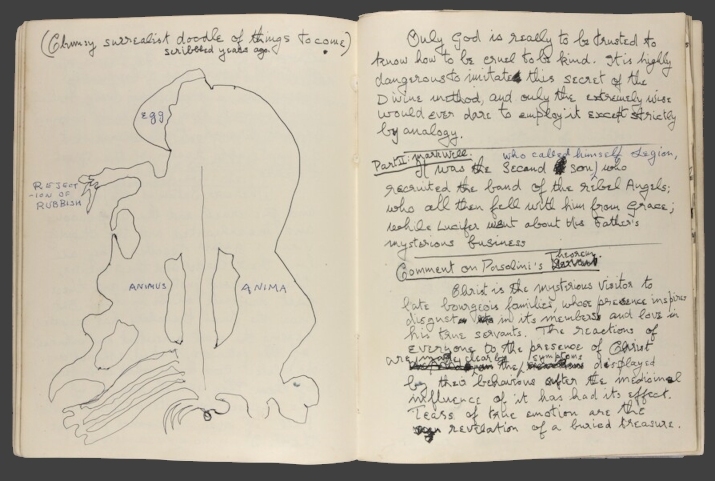 (Clumsy surrealist doodle of things to come)
scribbled years ago.
Egg
REJECT
-ION OF
RUBBISH
ANIMUS
ANIMA
Only God is really to be trusted to
know how to be cruel to be kind. It is highly
dangerous to imitate this secret of the
Divine method, and only the extremely wise
would ever dare to employ it except strictly
by analogy.
Part II: mark well. who called himself Legion,
It was the second son, who
recruited the band of the rebel Angels;
who all then fell with him from Grace;
while Lucifer went about his Father's
mysterious business
Comment on Pasolini's Theorem
Christ is the mysterious visitor to
late bourgeois families, whose presence inspires
disgust in its members and love in
his true servants. The reactions of
everyone to the presence of Christ
are clearly the symptoms displayed
by their behaviour after the medicinal
influence of it has had its effect.
Tears of true emotion are the
revelation of a buried treasure.